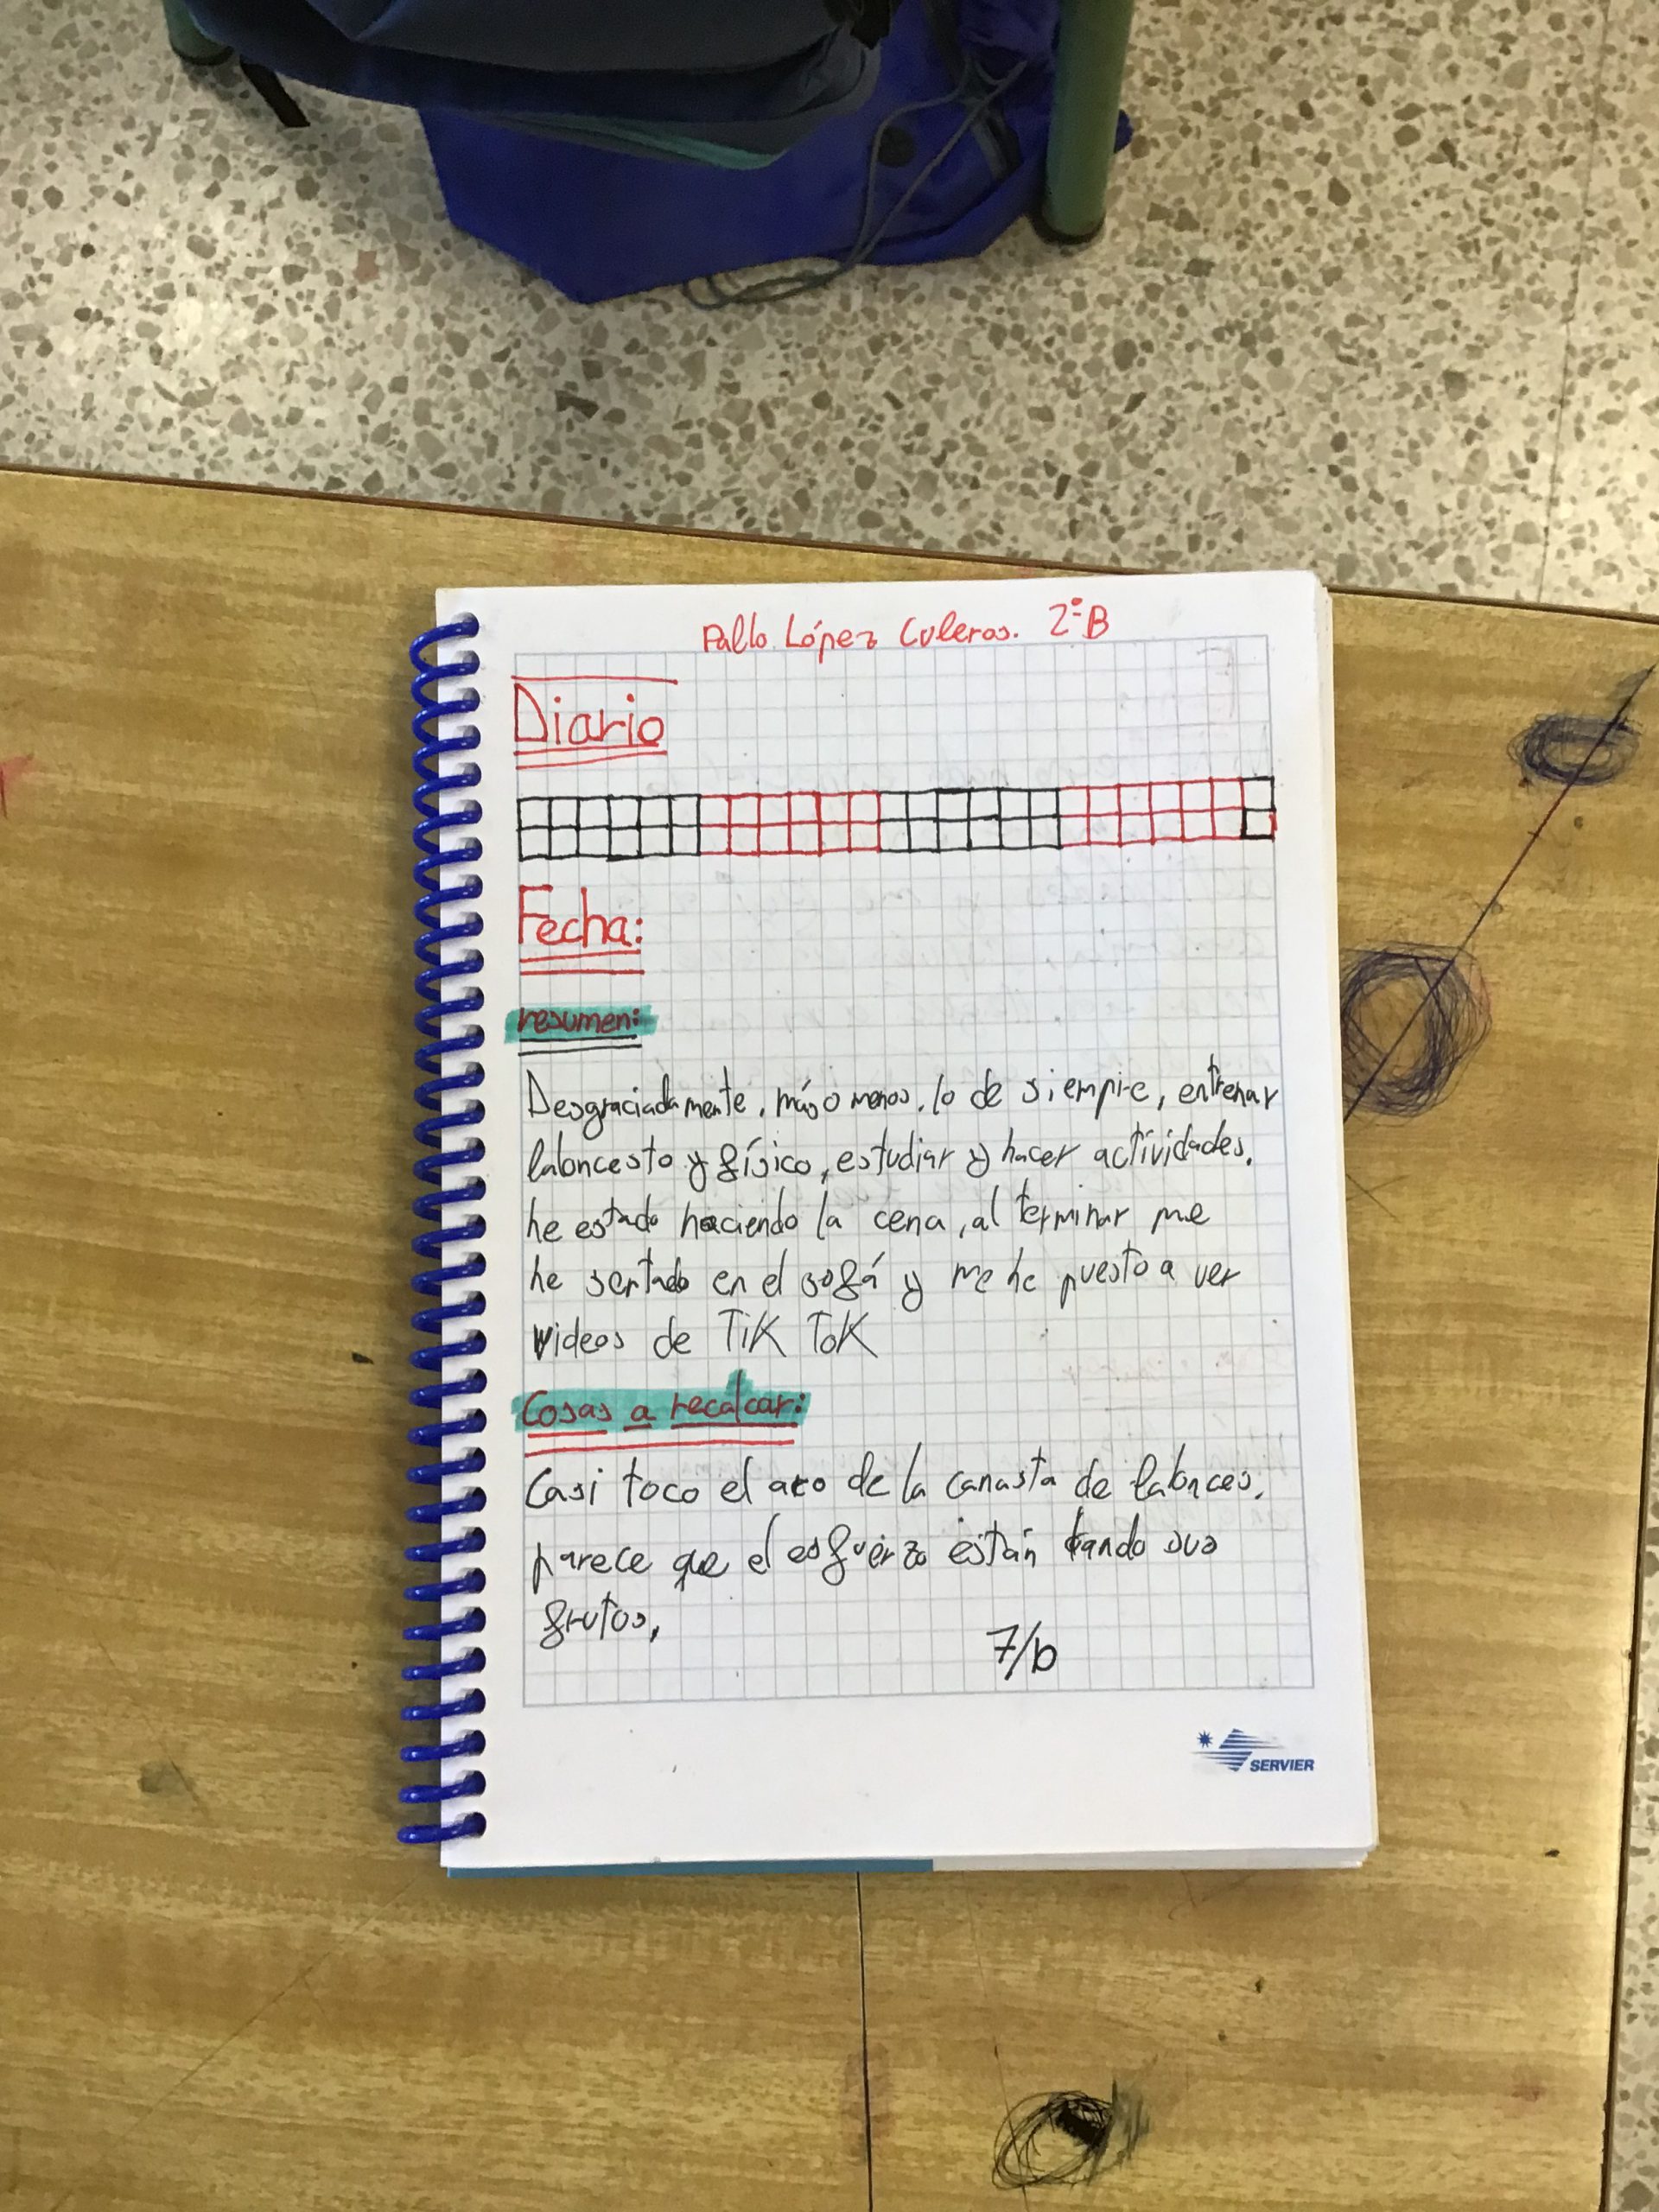 Pablo López Culeras. 2ºB
Diario
Fecha:
resumen:
Desgraciadamente, más o menos, lo de siempre, entrenar
baloncesto y físico, estudiar y hacer actividades.
he estado haciendo la cena, al terminar me
he sentado en el sofá y me he puesto a ver
videos de TiK ToK
Cosas a recalcar:
Casi toco el aro de la canasta de balonces.
parece que el esfuerzo están dando sus
frutos,
7/b
SERVIER